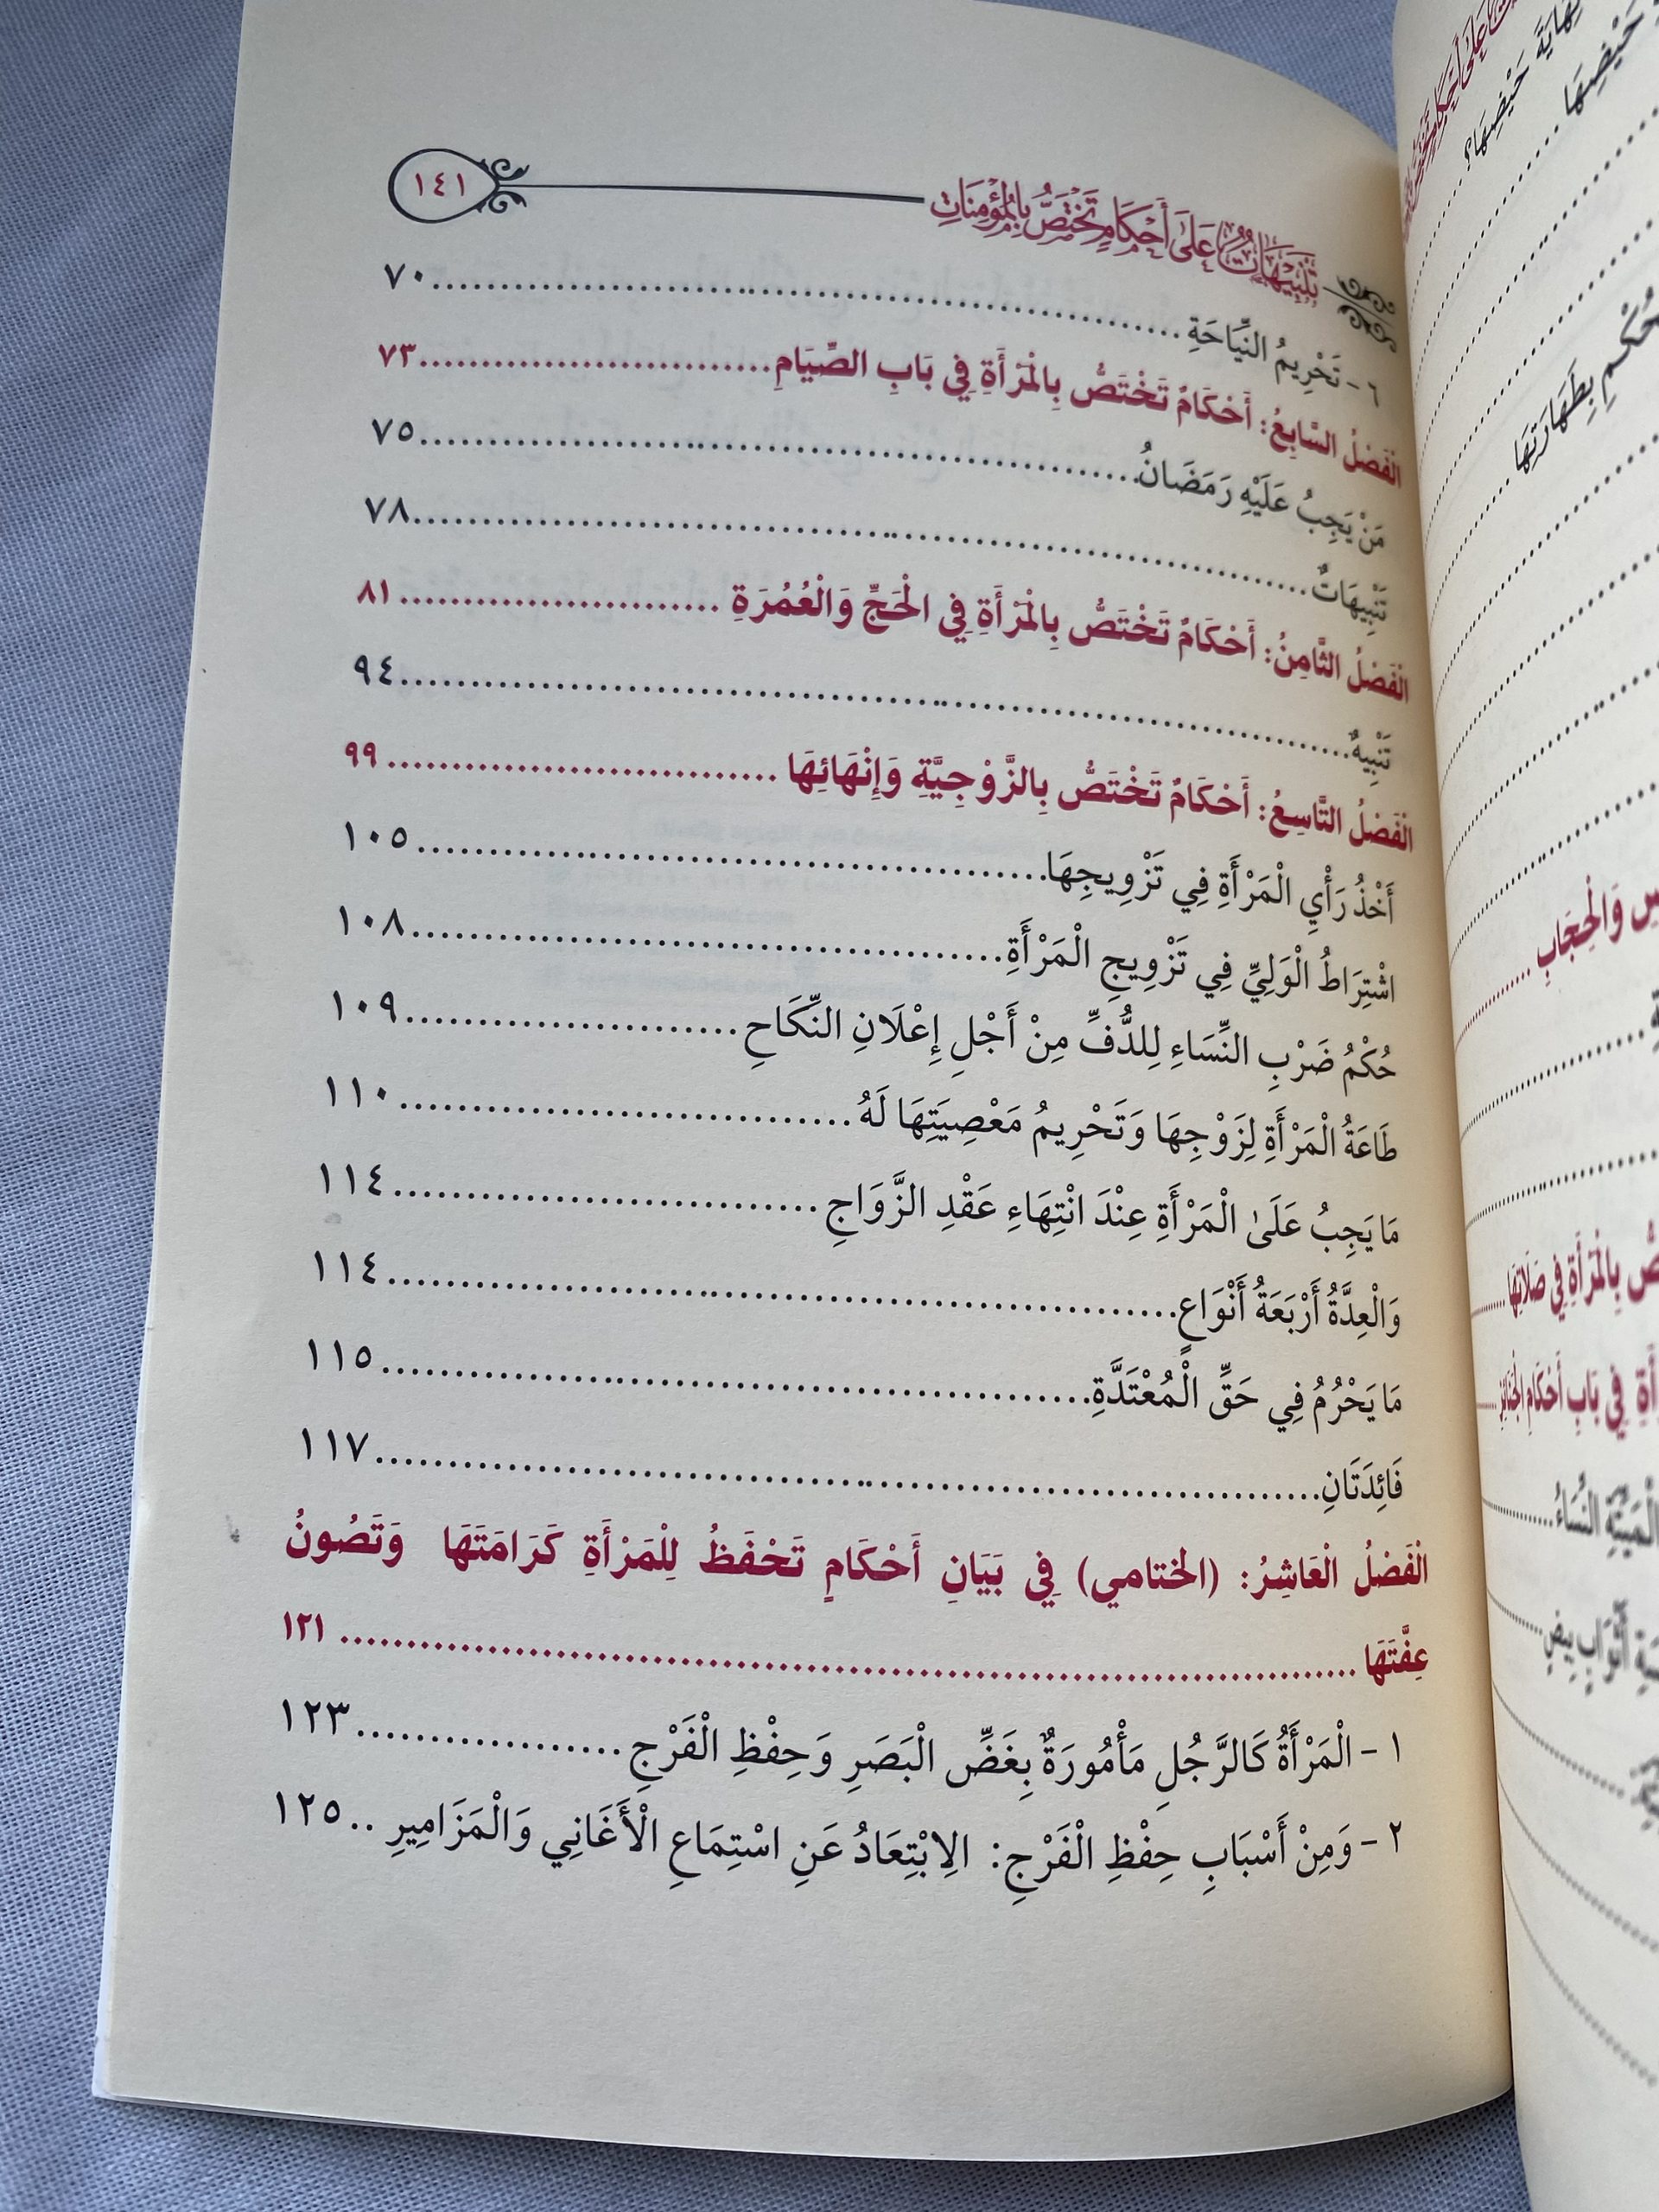 تَنْبِيهَاتٌ عَلَى أَحْكَامٍ تَخْتَصُّ بِالْمُؤْمِنَاتِ ١٤١
٦ - تَحْرِيمُ النِّيَاحَةِ ٧٠
الْفَصْلُ السَّابِعُ: أَحْكَامٌ تَخْتَصُّ بِالْمَرْأَةِ فِي بَابِ الصِّيَامِ ٧٣
مَنْ يَجِبُ عَلَيْهِ رَمَضَانُ ٧٥
تَنْبِيهَاتٌ ٧٨
الْفَصْلُ الثَّامِنُ: أَحْكَامٌ تَخْتَصُّ بِالْمَرْأَةِ فِي الْحَجِّ وَالْعُمْرَةِ ٨١
تَنْبِيهٌ ٩٤
الْفَصْلُ التَّاسِعُ: أَحْكَامٌ تَخْتَصُّ بِالزَّوْجِيَّةِ وَإِنْهَائِهَا ٩٩
أَخْذُ رَأْيِ الْمَرْأَةِ فِي تَزْوِيجِهَا ١٠٥
اشْتِرَاطُ الْوَلِيِّ فِي تَزْوِيجِ الْمَرْأَةِ ١٠٨
حُكْمُ ضَرْبِ النِّسَاءِ لِلدُّفِّ مِنْ أَجْلِ إِعْلَانِ النِّكَاحِ ١٠٩
طَاعَةُ الْمَرْأَةِ لِزَوْجِهَا وَتَحْرِيمُ مَعْصِيَتِهَا لَهُ ١١٠
مَا يَجِبُ عَلَىٰ الْمَرْأَةِ عِنْدَ انْتِهَاءِ عَقْدِ الزَّوَاجِ ١١٤
وَالْعِدَّةُ أَرْبَعَةُ أَنْوَاعٍ ١١٤
مَا يَحْرُمُ فِي حَقِّ الْمُعْتَدَّةِ ١١٥
فَائِدَتَانِ ١١٧
الْفَصْلُ الْعَاشِرُ: (الختامي) فِي بَيَانِ أَحْكَامٍ تَحْفَظُ لِلْمَرْأَةِ كَرَامَتَهَا وَتَصُونُ
عِفَّتَهَا ١٢١
١ - الْمَرْأَةُ كَالرَّجُلِ مَأْمُورَةٌ بِغَضِّ الْبَصَرِ وَحِفْظِ الْفَرْجِ ١٢٣
٢ - وَمِنْ أَسْبَابِ حِفْظِ الْفَرْجِ: الِابْتِعَادُ عَنِ اسْتِمَاعِ الْأَغَانِي وَالْمَزَامِيرِ .. ١٢٥
نِهَايَةَ حَيْضِهَا؟
حَيْضِهَا
حُكْمِ بِطَهَارَتِهَا
وَالْحِجَابِ
بِالْمَرْأَةِ فِي صَلَاتِهَا
فِي بَابِ أَحْكَامِ الْجَنَائِزِ
الْمَيِّتَةِ النِّسَاءُ
أَثْوَابٍ بِيضٍ